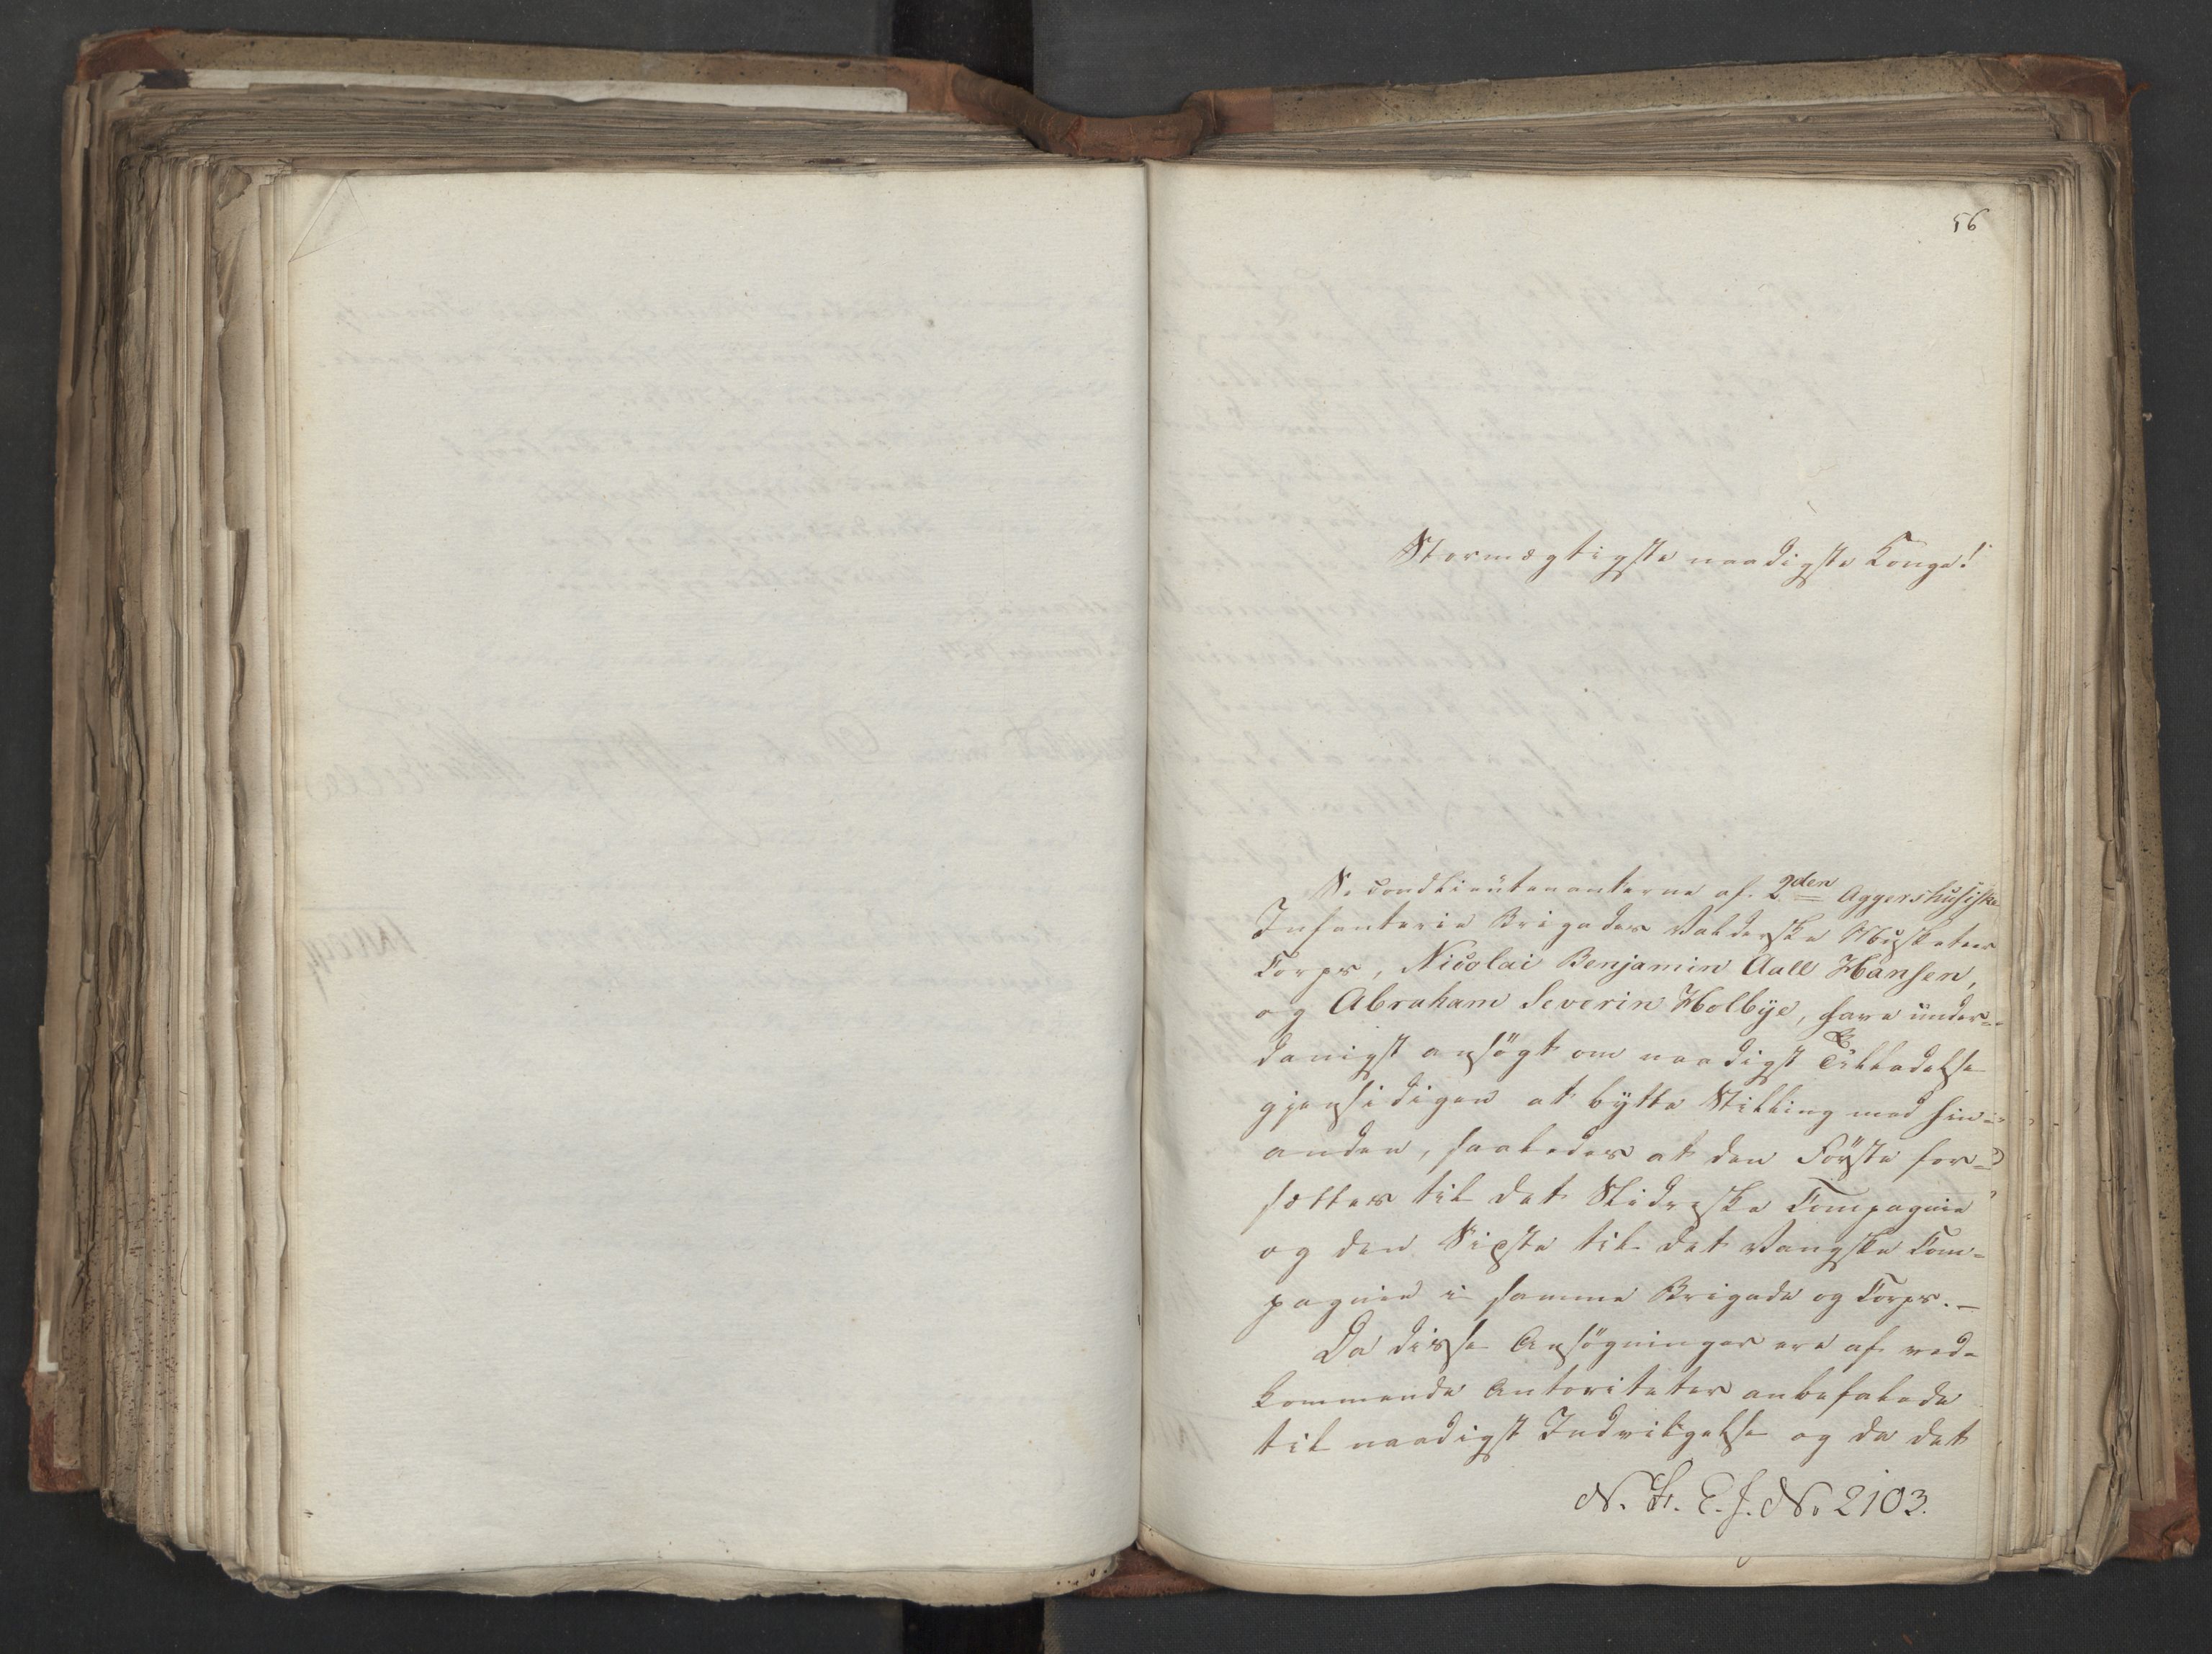 56
Stormægtigste naadigste Konge!
Secondlieutenanterne af 2den Aggershusiske
Infanterie Brigades Valderske Musketeer
Corps, Nicolai Benjamin Aall Hansen,
og Abraham Severin Holbye, have under-
danigst ansögt om naadigst Tilladelse
gjensidigen at bytte Stilling med hin-
anden, saaledes at den Förste for-
sættes til det Slidreske Compagnie
og den Sidste til det Vangske Com-
pagnie i samme Brigade og Corps. —
Da disse Ansögninger ere af ved-
kommende Autoriteter anbefalede
til naadigst Indvilgelse og da det
N. L. E. J. No 2103.